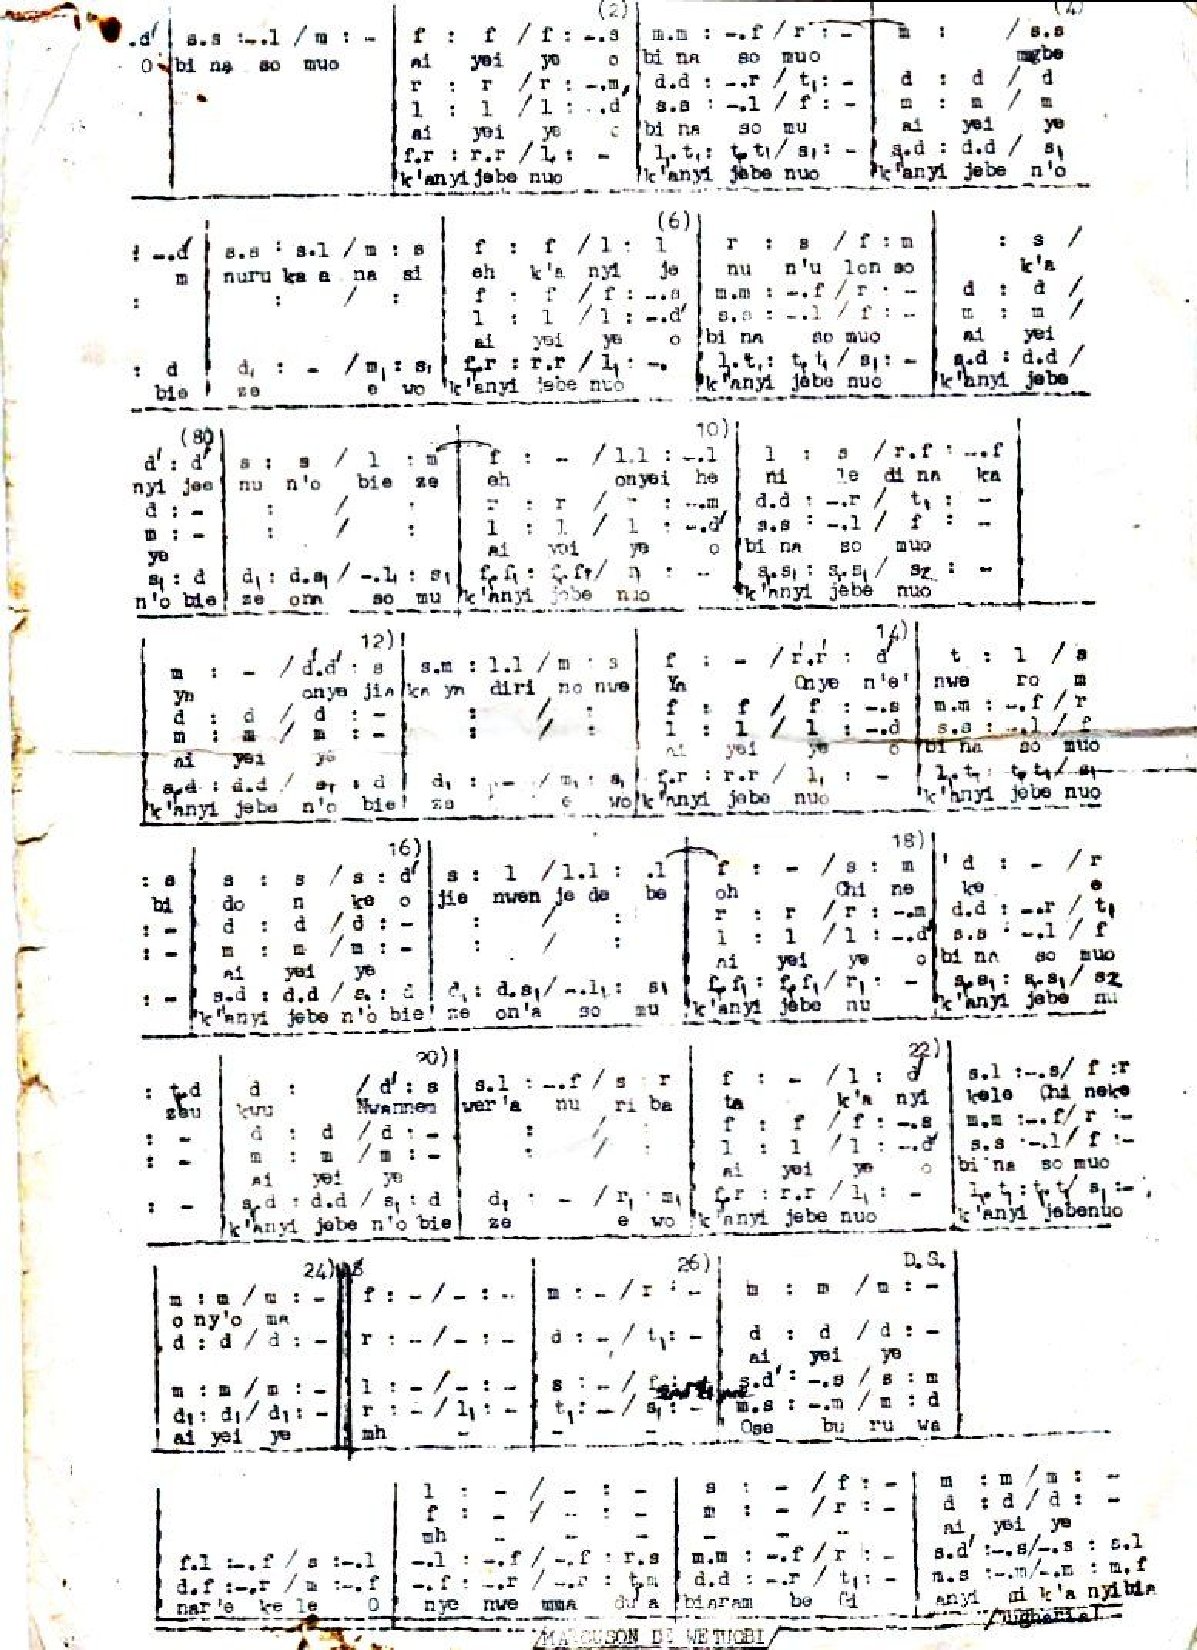 (2) (4)
.d' | s.s :-.l / m : - | f : f / f : -.s | m.m : -.f / r : - | m : / s.s
O bi na so muo | ai yei ye o | bi na so muo | mgbe
r : r / r : -.m, | d.d : -.r / t₁ : - | d : d / d
l : l / l : -.d | s.s : -.l / f : - | m : m / m
ai yei ye o | bi na so mu | ai yei ye
f.r : r.r / l₁ : - | l₁.t₁ : t₁.t₁ / s₁ : - | s₁.d : d.d / s₁
k'anyi jebe nuo | k'anyi jebe nuo | k'anyi jebe n'o
(6)
: -.d' | s.s : s.l / m : s | f : f / l : l | r : s / f : m | : s /
m | nuru ka a na si | eh k'a nyi je | nu n'u lon so | k'a
: | : / : | f : f / f : -.s | m.m : -.f / r : - | d : d /
l : l / l : -.d' | s.s : -.l / f : - | m : m /
ai yei ye o | bi na so muo | ai yei
: d | d₁ : - / m₁ : s₁ | f.r : r.r / l₁ : -. | l₁.t₁ : t₁.t₁ / s₁ : - | s₁.d : d.d /
bie | ze e wo | k'anyi jebe nuo | k'anyi jebe nuo | k'anyi jebe
(8) 10)
d' : d' | s : s / l : m | f : - / l.l : -.l | l : s / r.f : -.f
nyi jee | nu n'o bie ze | eh onyei he | ni le di na ka
d : - | : / : | r : r / r : -.m | d.d : -.r / t₁ : -
m : - | : / : | l : l / l : -.d' | s.s : -.l / f : -
ye | ai yei ye o | bi na so muo
s₁ : d | d₁ : d.s₁ / -.l₁ : s₁ | f₁.f₁ : f₁.f₁ / r₁ : - | s₁.s₁ : s₁.s₁ / s₂ : -
n'o bie | ze ona so mu | k'anyi jebe nuo | k'anyi jebe nuo
12) 14)
m : - / d'.d' : s | s.m : l.l / m : s | f : - / r'.r' : d' | t : l / s
yn onye jia | ka ya diri no nwe | Ya Onye n'e' | nwe ro m
d : d / d : - | : / : | f : f / f : -.s | m.m : -.f / r
m : m / m : - | : / : | l : l / l : -.d | s.s : -.l / f
ai yei ye | ai yei ye o | bi na so muo
s₁.d : d.d / s₁ : d | d₁ : - / m₁ : s₁ | f.r : r.r / l₁ : - | l₁.t₁ : t₁.t₁ / s₁
k'anyi jebe n'o bie | ze e wo | k'anyi jebe nuo | k'anyi jebe nuo
16) 18)
: s | s : s / s : d' | s : l / l.l : .l | f : - / s : m | d : - / r
bi | do n ke o | jie nwen je de be | oh Chi ne | ke e
: - | d : d / d : - | : / : | r : r / r : -.m | d.d : -.r / t₁
: - | m : m / m : - | : / : | l : l / l : -.d' | s.s : -.l / f
ai yei ye | ai yei ye o | bi na so muo
: - | s.d : d.d / s₁ : d | d₁ : d.s₁ / -.l₁ : s₁ | f₁.f₁ : f₁.f₁ / r₁ : - | s₁.s₁ : s₁.s₁ / s₂
k'anyi jebe n'o bie | ze on'a so mu | k'anyi jebe nu | k'anyi jebe nu
20) 22)
: t₁.d | d : / d' : s | s.l : -.f / s : r | f : - / l : d' | s.l :-.s / f :r
zeu | kwu Nwannem | wer'a nu ri ba | ta k'a nyi | kele Chi neke
: - | d : d / d : - | : / : | f : f / f : -.s | m.m :-.f / r :-
: - | m : m / m : - | : / : | l : l / l : -.d' | s.s :-.l / f :-
ai yei ye | ai yei ye o | bi na so muo
: - | s₁.d : d.d / s₁ : d | d₁ : - / r₁ : m₁ | f.r : r.r / l₁ : - | l₁.t₁ : t₁.t₁ / s₁ :-
k'anyi jebe n'o bie | ze e wo | k'anyi jebe nuo | k'anyi jebenuo
24) 26) D.S.
m : m / m : - | f : - / - : - | m : - / r : - | m : m / m : -
o ny'o ma
d : d / d : - | r : - / - : - | d : - / t₁ : - | d : d / d : -
ai yei ye
m : m / m : - | l : - / - : - | s : - / f : - | s.d' : -.s / s : m
d₁ : d₁ / d₁ : - | r : - / l₁ : - | t₁ : - / s₁ : - | m.s : -.m / m : d
ai yei ye | mh - | - - | Ose bu ru wa
l : - / - : - | s : - / f : - | m : m / m : -
f : - / - : - | m : - / r : - | d : d / d : -
mh - - - | - - - | ai yei ye
f.l :-.f / s :-.l | -.l : -.f / -.f : r.s | m.m : -.f / r : - | s.d' :-.s/-.s : s.l
d.f :-.r / m :-.f | -.f : -.r / -.r : t₁.m | d.d : -.r / t₁ : - | m.s :-.m/-.m : m.f
nar'e ke le O | nye nwe mma du a | biaram be Gi | anyi ni k'a nyi bia
MARCUSON DE WETUOBI